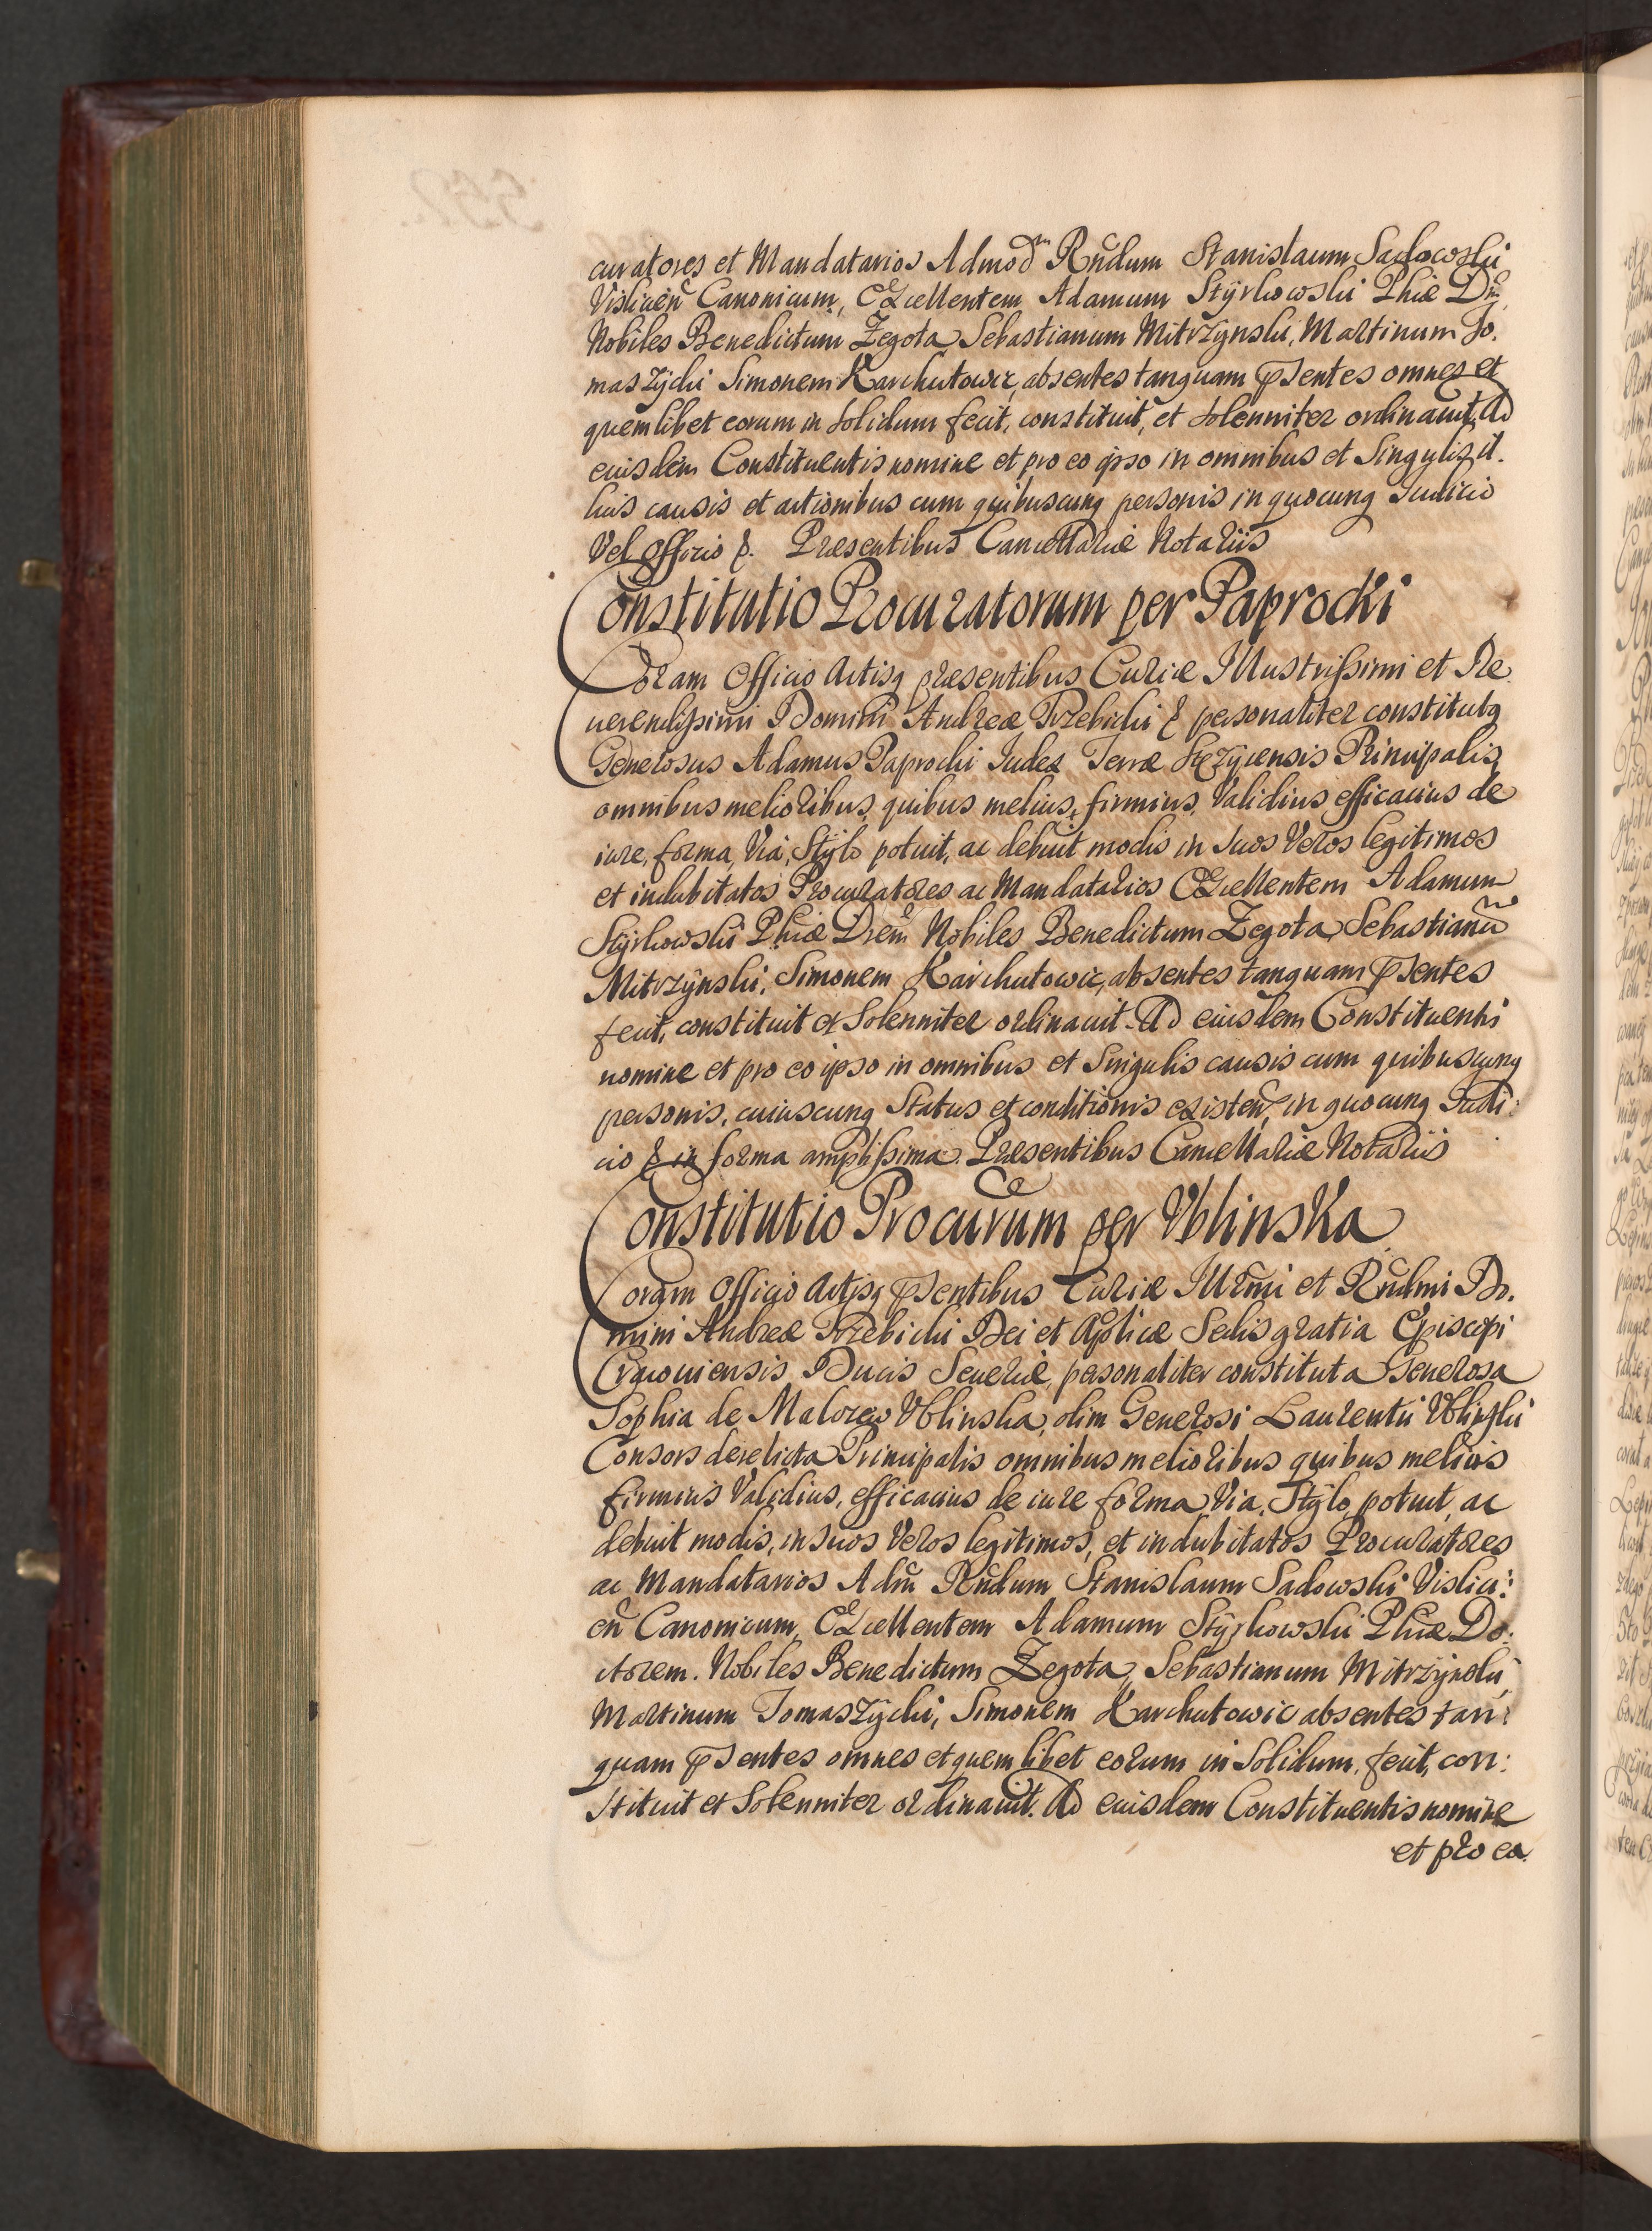 curatores et Mandatarios Admod̄m Rn̄dum Stanislaum Sadowski
Vislicen̄ Canonicum, Excellentem Adamum Styrkowski Phiæ Drēm,
Nobiles Benedictum Zegota Sebastianum Mitrzynski, Martinum To.
maszycki Simonem Karchutowic, absentes tanquam p̄sentes omnes et
quemlibet eorum in solidum fecit, constituit, et solenniter ordinauit, Ad
eiusdem Constituentis nomine et pro eo ipso in omnibus et singulis il.
lius causis et actionibus cum quibuscunq personis in quocunq Iudicio
Vel Officio &. Præsentibus Cancellariæ Notariis
Constitutio Procuratorum per Paprocki
Coram Officio Actisq præsentibus Curiæ Illustrissimi et Re
uerendissimi Domini Andreæ Trzebicki & personaliter constitutq
Generosus Adamus Paprocki Iudex Terræ Stezycensis Principalis
omnibus melioribus, quibus melius, firmius, Validius efficacius de
iure, forma, Via, Stylo potuit, ac debuit modis in suos Veros legitimos
et indubitatos Procuratores ac Mandatarios Excellentem Adamum
Styrkowski Phiæ Drem̄ Nobiles Benedictum Zegota, Sebastianū
Mitrzynski, Simonem Karchutowic, absentes tanquam p̄sentes
fecit, constituit et Solenniter ordinauit. Ad eiusdem Constituentis
nomine et pro eo ipso in omnibus et singulis causis cum quibuscunq
personis, cuiuscunq Status et conditionis existen̄, in quocunq Iudi:
cio & in forma amplissima. Præsentibus Cancellariæ Notariis
Constitutio Procurūm per Vblinska
Coram Officio Actisq p̄sentibus Curiæ Illrm̄i et Rn̄dmi Do.
mini Andreæ Trzebicki Dei et Aplicæ Sedis gratia Episcopi
Cracouiensis Ducis Seueriæ, personaliter constituta Generosa
Sophia de Malozew Vblinska, olim Generosi Laurentii Vblinski
Consors derelicta Principalis omnibus melioribus quibus melius
firmius Validius, efficacius de iure forma Via, Stylo, potuit, ac
debuit modis, in suos Veros legitimos, et indubitatos Procuratores
ac Mandatarios Adm̄ Rn̄dum Stanislaum Sadowski Vislici:
en̄ Canonicum, Excellentem Adamum Styrkowski Phiæ Do:
ctorem. Nobiles Benedictum Zegota, Sebastianum Mitrzynski,
Martinum Tomaszycki, Simonem Karchutowic absentes tan:
quam p̄sentes omnes et quemlibet eorum in Solidum, fecit, con:
stituit et Solenniter ordinauit. Ad eiusdem Constituentis nomine
et pro ea